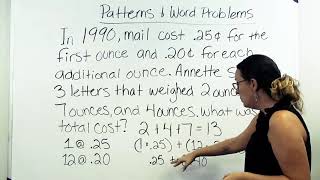 Patterns & Word Problems
In 1990, mail cost .25¢ for the
first ounce and .20¢ for each
additional ounce. Annette
3 letters that weighed 2 oun
7 ounces, and 4 ounces. what was
total cost? 2+4+7=13
1@.25 (1•.25)+(12
12@.20 .25 + 40